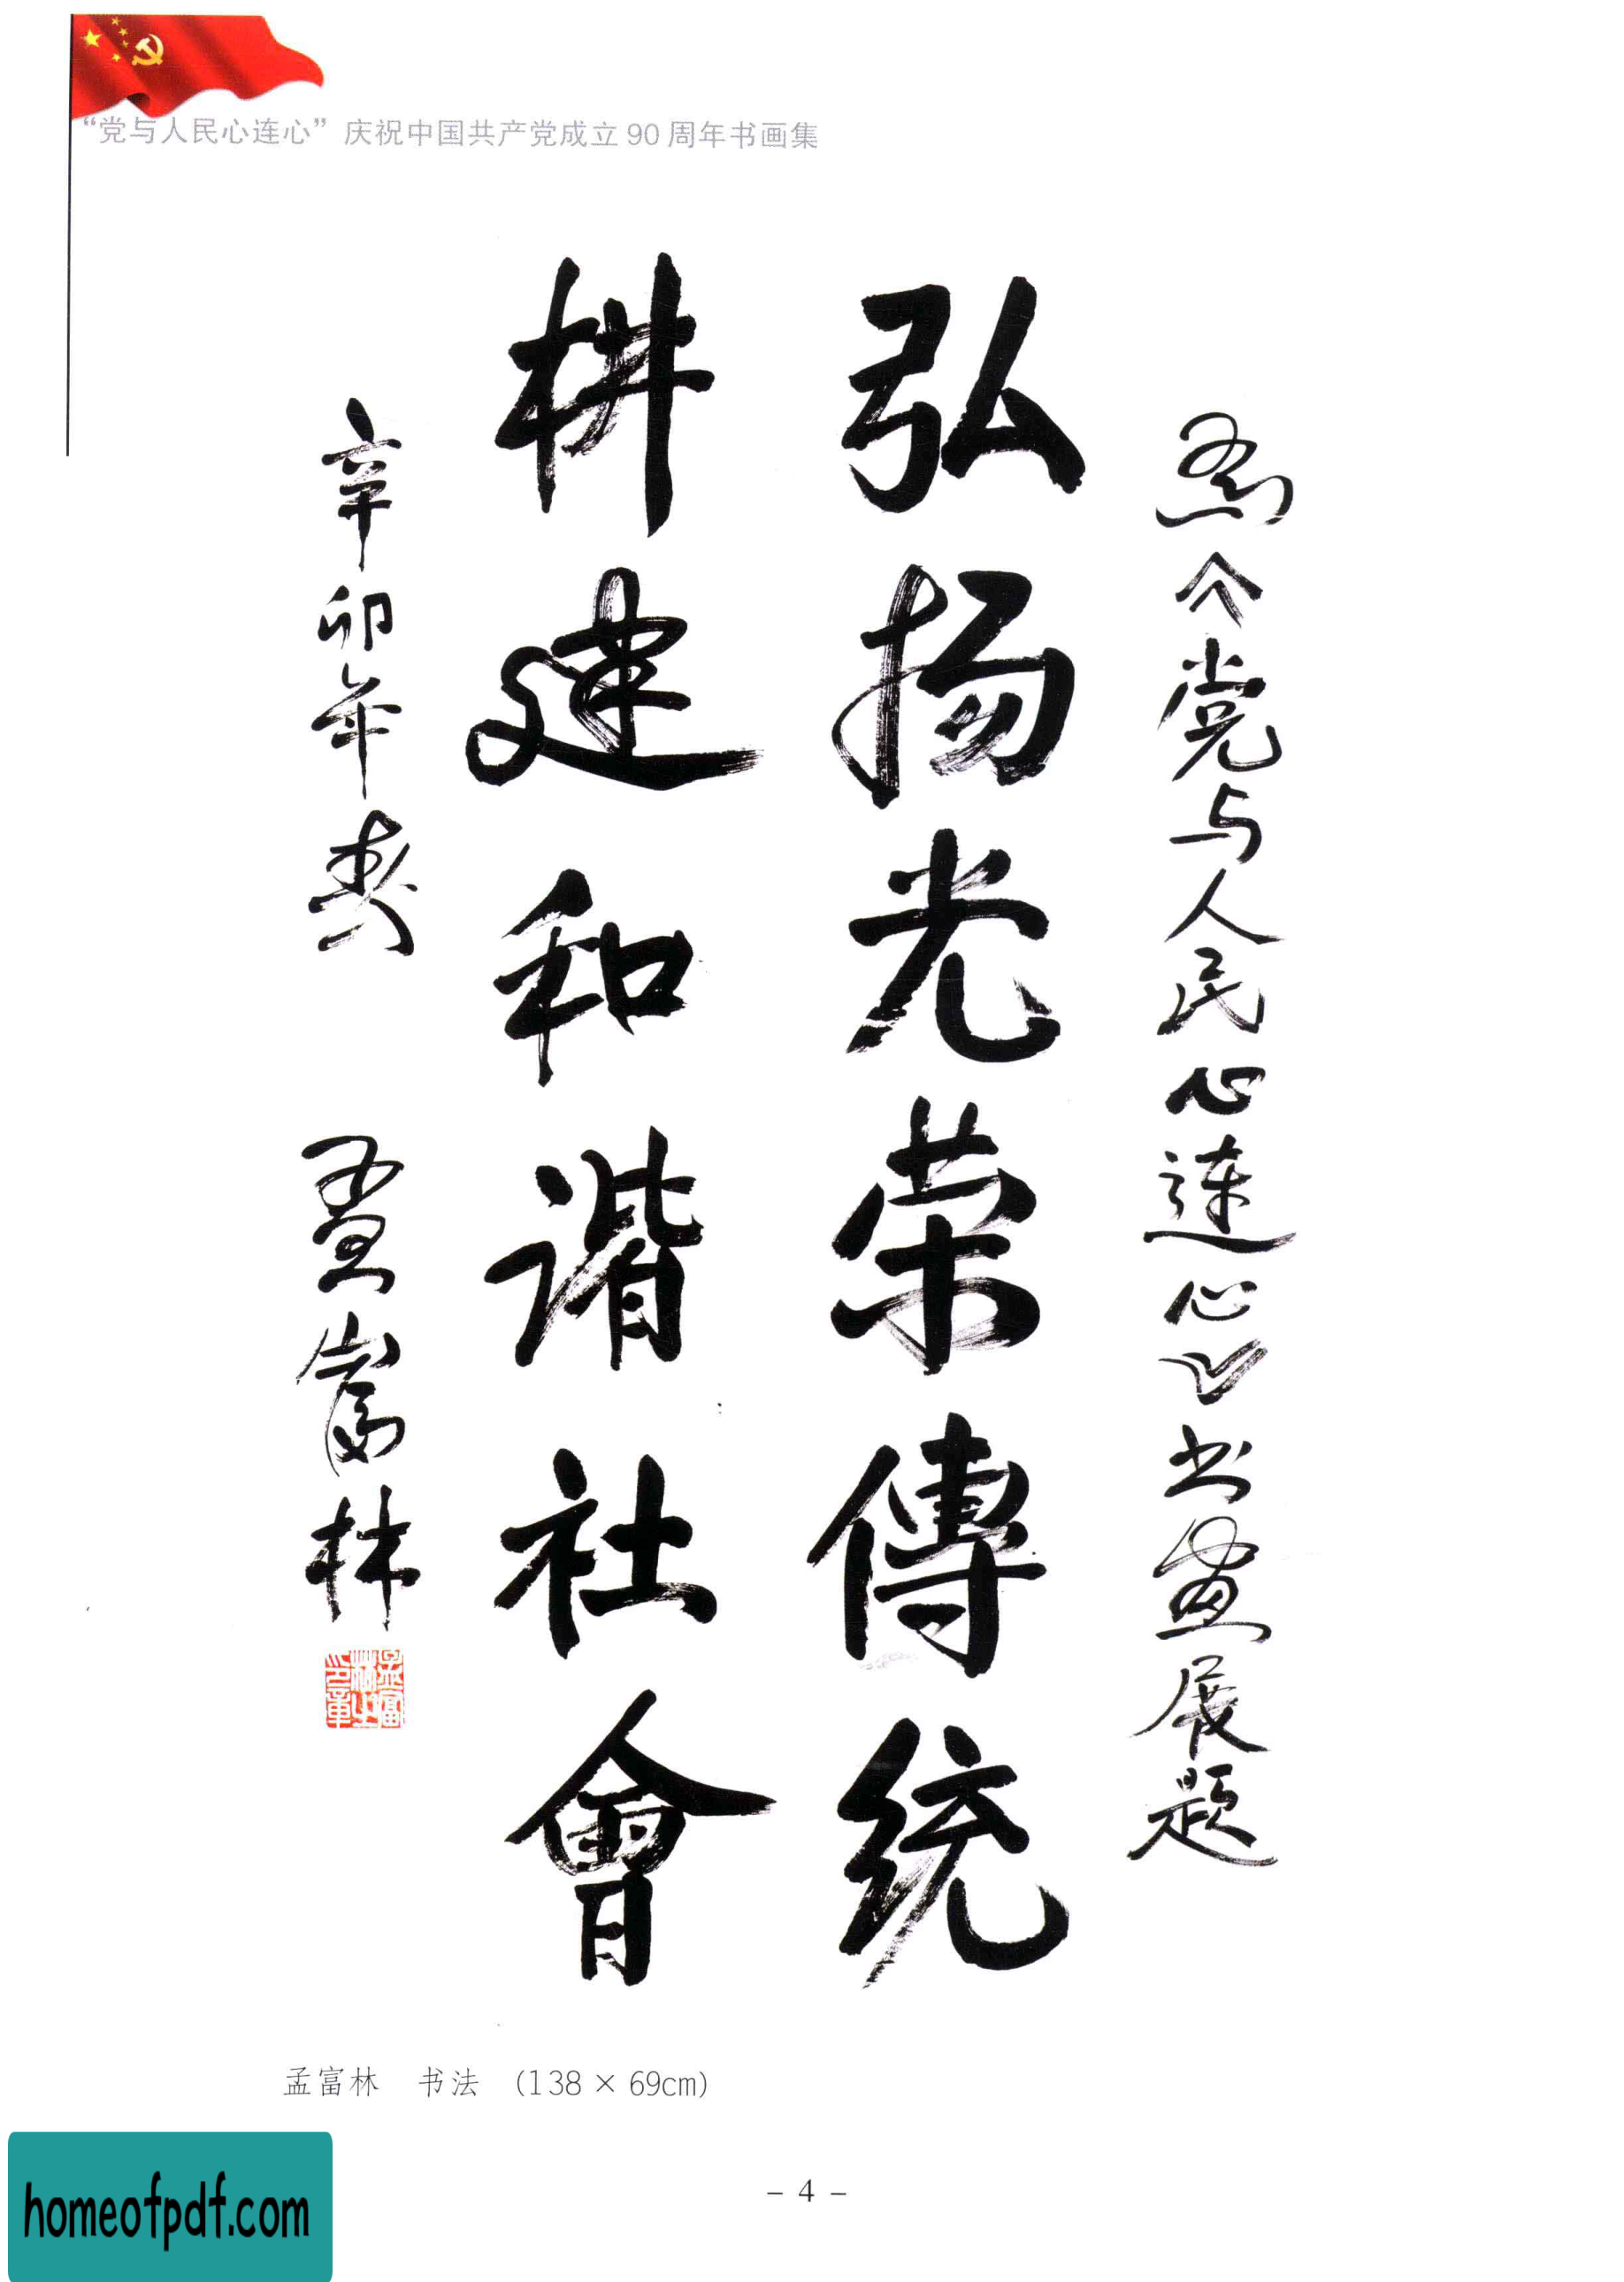 “党与人民心连心”庆祝中国共产党成立90周年书画集
为《党与人民心连心》书画展题
弘扬光荣傳统
枡建和谐社會
辛卯年春 孟富林
孟富林之印章
孟富林 书法 (138×69cm)
- 4 -
homeofpdf.com